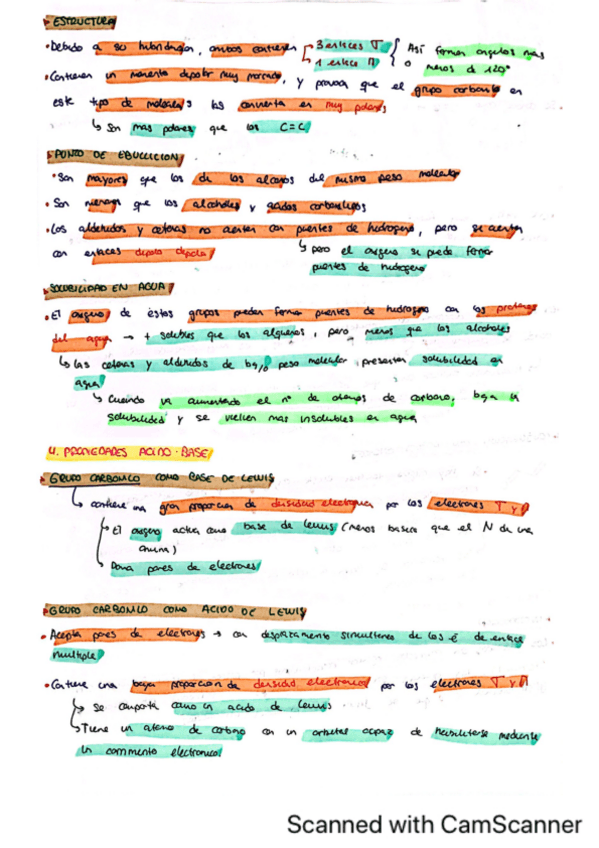 ESTRUCTURA
• Debido a su hibridación, ambos contienen 3 enlaces σ { Así forman ángulos más
1 enlace π o menos de 120°
• Contienen un momento dipolar muy marcado, y provoca que el grupo carbonilo en
este tipo de moléculas las convierta en muy polares
↳ Son más polares que los C=C
PUNTO DE EBULLICION
• Son mayores que los de los alcanos del mismo peso molecular
• Son menores que los alcoholes y ácidos carboxílicos
• Los aldehídos y cetonas no asocian con puentes de hidrógeno, pero se
con enlaces dipolo dipolo ↳ pero el oxígeno si puede formar
puentes de hidrógeno
SOLUBILIDAD EN AGUA
• El oxígeno de estos grupos pueden formar puentes de hidrógeno con los protones
del agua → + solubles que los alquenos, pero menos que los alcoholes
↳ las cetonas y aldehídos de bajo peso molecular presentan solubilidad en
agua
↳ Cuando va aumentado el nº de átomos de carbono, baja la
solubilidad y se vuelven mas insolubles en agua
4. PROPIEDADES ACIDO-BASE
GRUPO CARBONILO COMO BASE DE LEWIS
↳ contiene una gran proporcion de densidad electronica por los electrones π y n
↳ El oxígeno actúa como base de Lewis (menos básica que el N de una
amina)
↳ Dona pares de electrones
GRUPO CARBONILO COMO ACIDO DE LEWIS
• Acepta pares de electrones → con desplazamiento simultáneo de los é de enlace
multiple
• Contiene una baja proporcion de densidad electronica por los electrones π y n
↳ Se comporta como un acido de Lewis
↳ Tiene un átomo de carbono con un orbital capaz de mediante
un commento electronico
Scanned with CamScanner